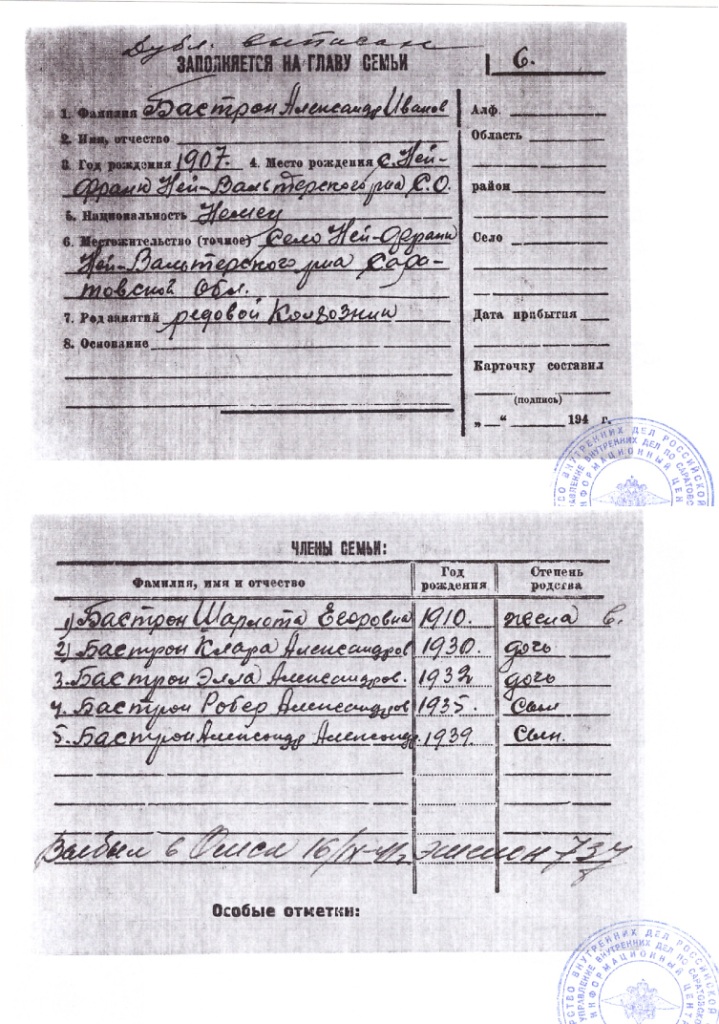 Дубл. выписан
ЗАПОЛНЯЕТСЯ НА ГЛАВУ СЕМЬИ
6.
1. Фамилия Бастрон Александр Иванов
2. Имя, отчество
3. Год рождения 1907. 4. Место рождения с. Ней-
Франк Ней-Вальтерского р-на С.О.
5. Национальность Немец
6. Местожительство (точное) село Ней-Франк
Ней-Вальтерского р-на Сара-
товской Обл.
7. Род занятий редовой Колхозник
8. Основание
Алф.
Область
район
Село
Дата прибытия
Карточку составил
(подпись)
„ “ 194 г.
ВНУТРЕННИХ ДЕЛ РОССИЙСКОЙ
УПРАВЛЕНИЕ ВНУТРЕННИХ ДЕЛ ПО САРАТОВСКОЙ
ИНФОРМАЦИОННЫЙ ЦЕНТР
ЧЛЕНЫ СЕМЬИ:
Фамилия, имя и отчество Год рождения Степень родства
1) Бастрон Шарлота Егоровна 1910. жена
2) Бастрон Клара Александров 1930. дочь
3. Бастрон Элла Александров. 1932 дочь
4. Бастрон Робер Александров 1935. Сын
5. Бастрон Александр Александр. 1939. Сын.
Выбыл в Омск 16/IX-41г эшелон 737
Особые отметки:
ВНУТРЕННИХ ДЕЛ РОССИЙСКОЙ
УПРАВЛЕНИЕ ВНУТРЕННИХ ДЕЛ ПО САРАТОВСКОЙ
ИНФОРМАЦИОННЫЙ ЦЕНТР